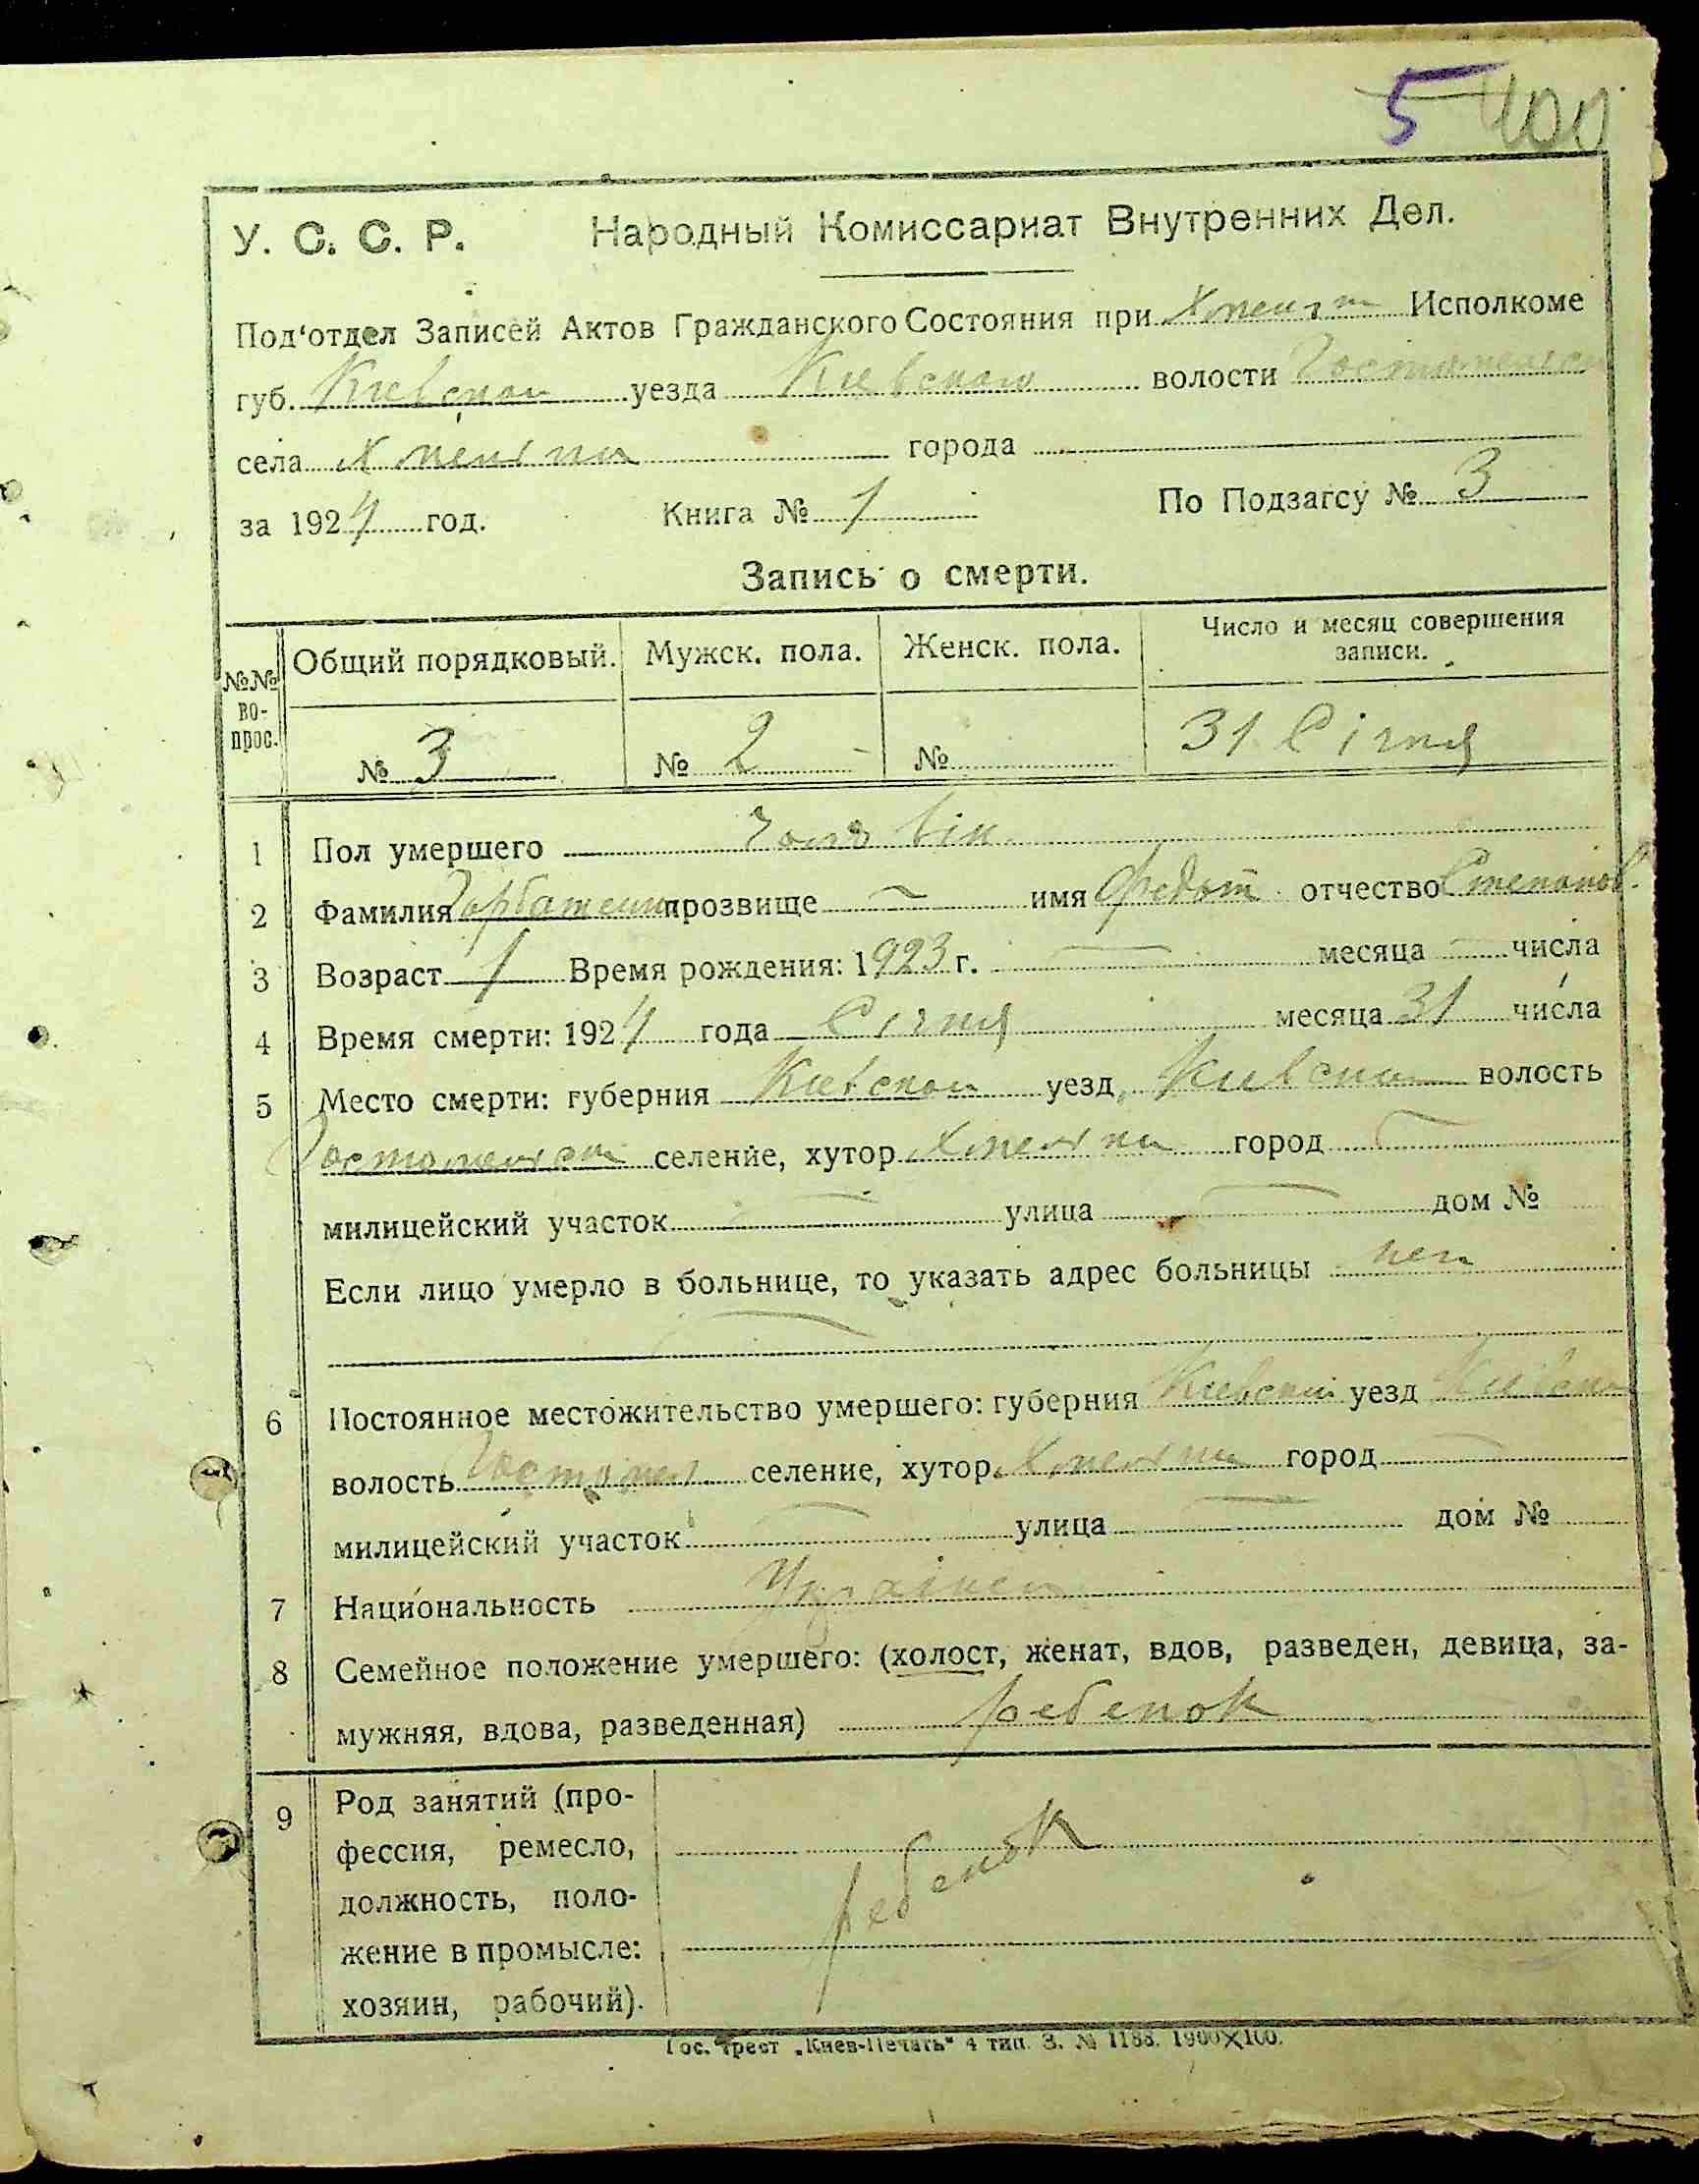 5 400
У. С. С. Р. Народный Комиссариат Внутренних Дел.
Под‘отдел Записей Актов Гражданского Состояния при Исполкоме
губ. Киевской уезда Киевского волости
села города
за 1924 год. Книга № 1 По Подзагсу № 3
Запись о смерти.
№№ во-прос. Общий порядковый. Мужск. пола. Женск. пола. Число и месяц совершения записи.
№ 3 № 2 № 31 Січня
1 Пол умершего чоловік
2 Фамилия прозвище — имя Федот отчество Степанов.
3 Возраст 1 Время рождения: 1923 г. — месяца — числа
4 Время смерти: 1924 года Січня месяца 31 числа
5 Место смерти: губерния Киевской уезд, волость
селение, хутор город —
милицейский участок — улица — дом №
Если лицо умерло в больнице, то указать адрес больницы нет
—
6 Постоянное местожительство умершего: губерния Киевской уезд
волость селение, хутор город —
милицейский участок — улица — дом №
7 Национальность
8 Семейное положение умершего: (холост, женат, вдов, разведен, девица, за-
мужняя, вдова, разведенная) ребенок
9 Род занятий (про-
фессия, ремесло,
должность, поло-
жение в промысле:
хозяин, рабочий).
ребенок
Гос. трест „Киев-Печать“ 4 тип. З. № 1188. 1900×100.